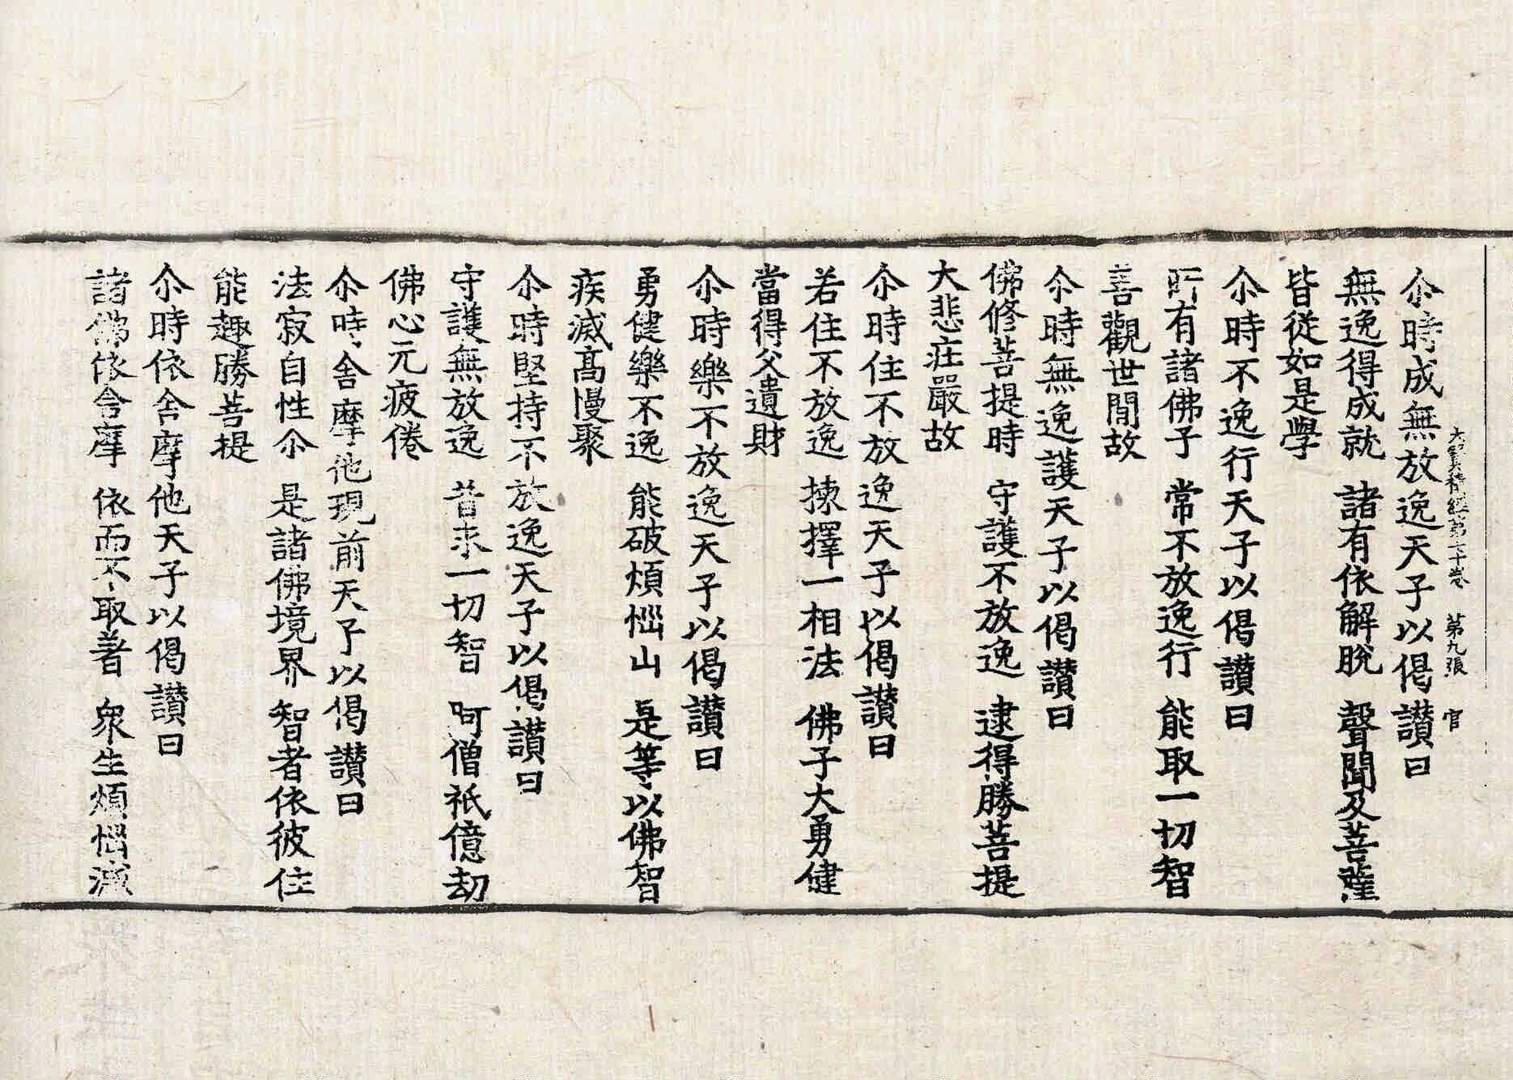 大寶積經第六十卷 第九張 官
尒時成無放逸天子以偈讃曰
無逸得成就 諸有依解脫 聲聞及菩薩
皆從如是學
尒時不逸行天子以偈讃曰
所有諸佛子 常不放逸行 能取一切智
善觀世間故
尒時無逸護天子以偈讃曰
佛修菩提時 守護不放逸 逮得勝菩提
大悲莊嚴故
尒時住不放逸天子以偈讃曰
若住不放逸 揀擇一相法 佛子大勇健
當得父遺財
尒時樂不放逸天子以偈讃曰
勇健樂不逸 能破煩惱山 是等以佛智
疾滅高慢聚
尒時堅持不放逸天子以偈讃曰
守護無放逸 昔求一切智 阿僧祇億劫
佛心元疲倦
尒時舍摩他現前天子以偈讃曰
法寂自性尒 是諸佛境界 智者依彼住
能趣勝菩提
尒時依舍摩他天子以偈讃曰
諸佛依舍摩 依而不取著 衆生煩惱滅